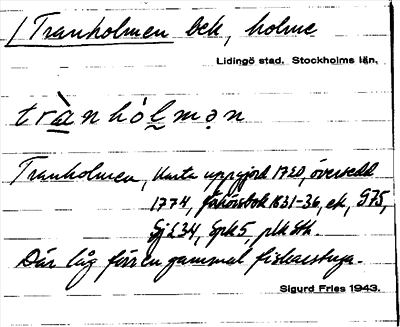 Tranholmen bek, holme
Lidingö stad. Stockholms län.
trànhólmən
Tranholmen, Karta uppgjord 1720, översedd
1774, Jbok 1831-36, ek, G75,
SjE34, Spk5, plk Sth
Där låg förr en gammal fiskarstuga.
Sigurd Fries 1943.